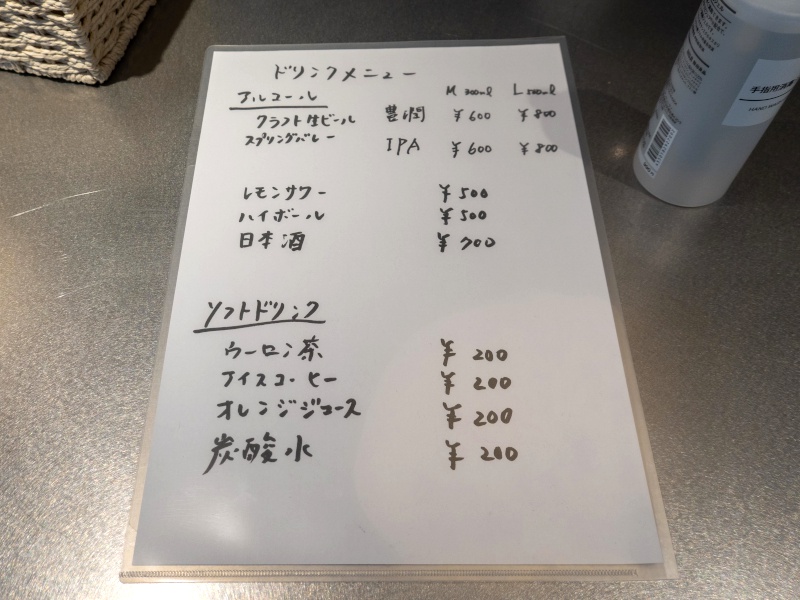 ドリンクメニュー
アルコール M 300ml L 500ml
クラフト生ビール 豊潤 ¥600 ¥800
スプリングバレー IPA ¥600 ¥800
レモンサワー ¥500
ハイボール ¥500
日本酒 ¥700
ソフトドリンク
ウーロン茶 ¥200
アイスコーヒー ¥200
オレンジジュース ¥200
炭酸水 ¥200
手指用